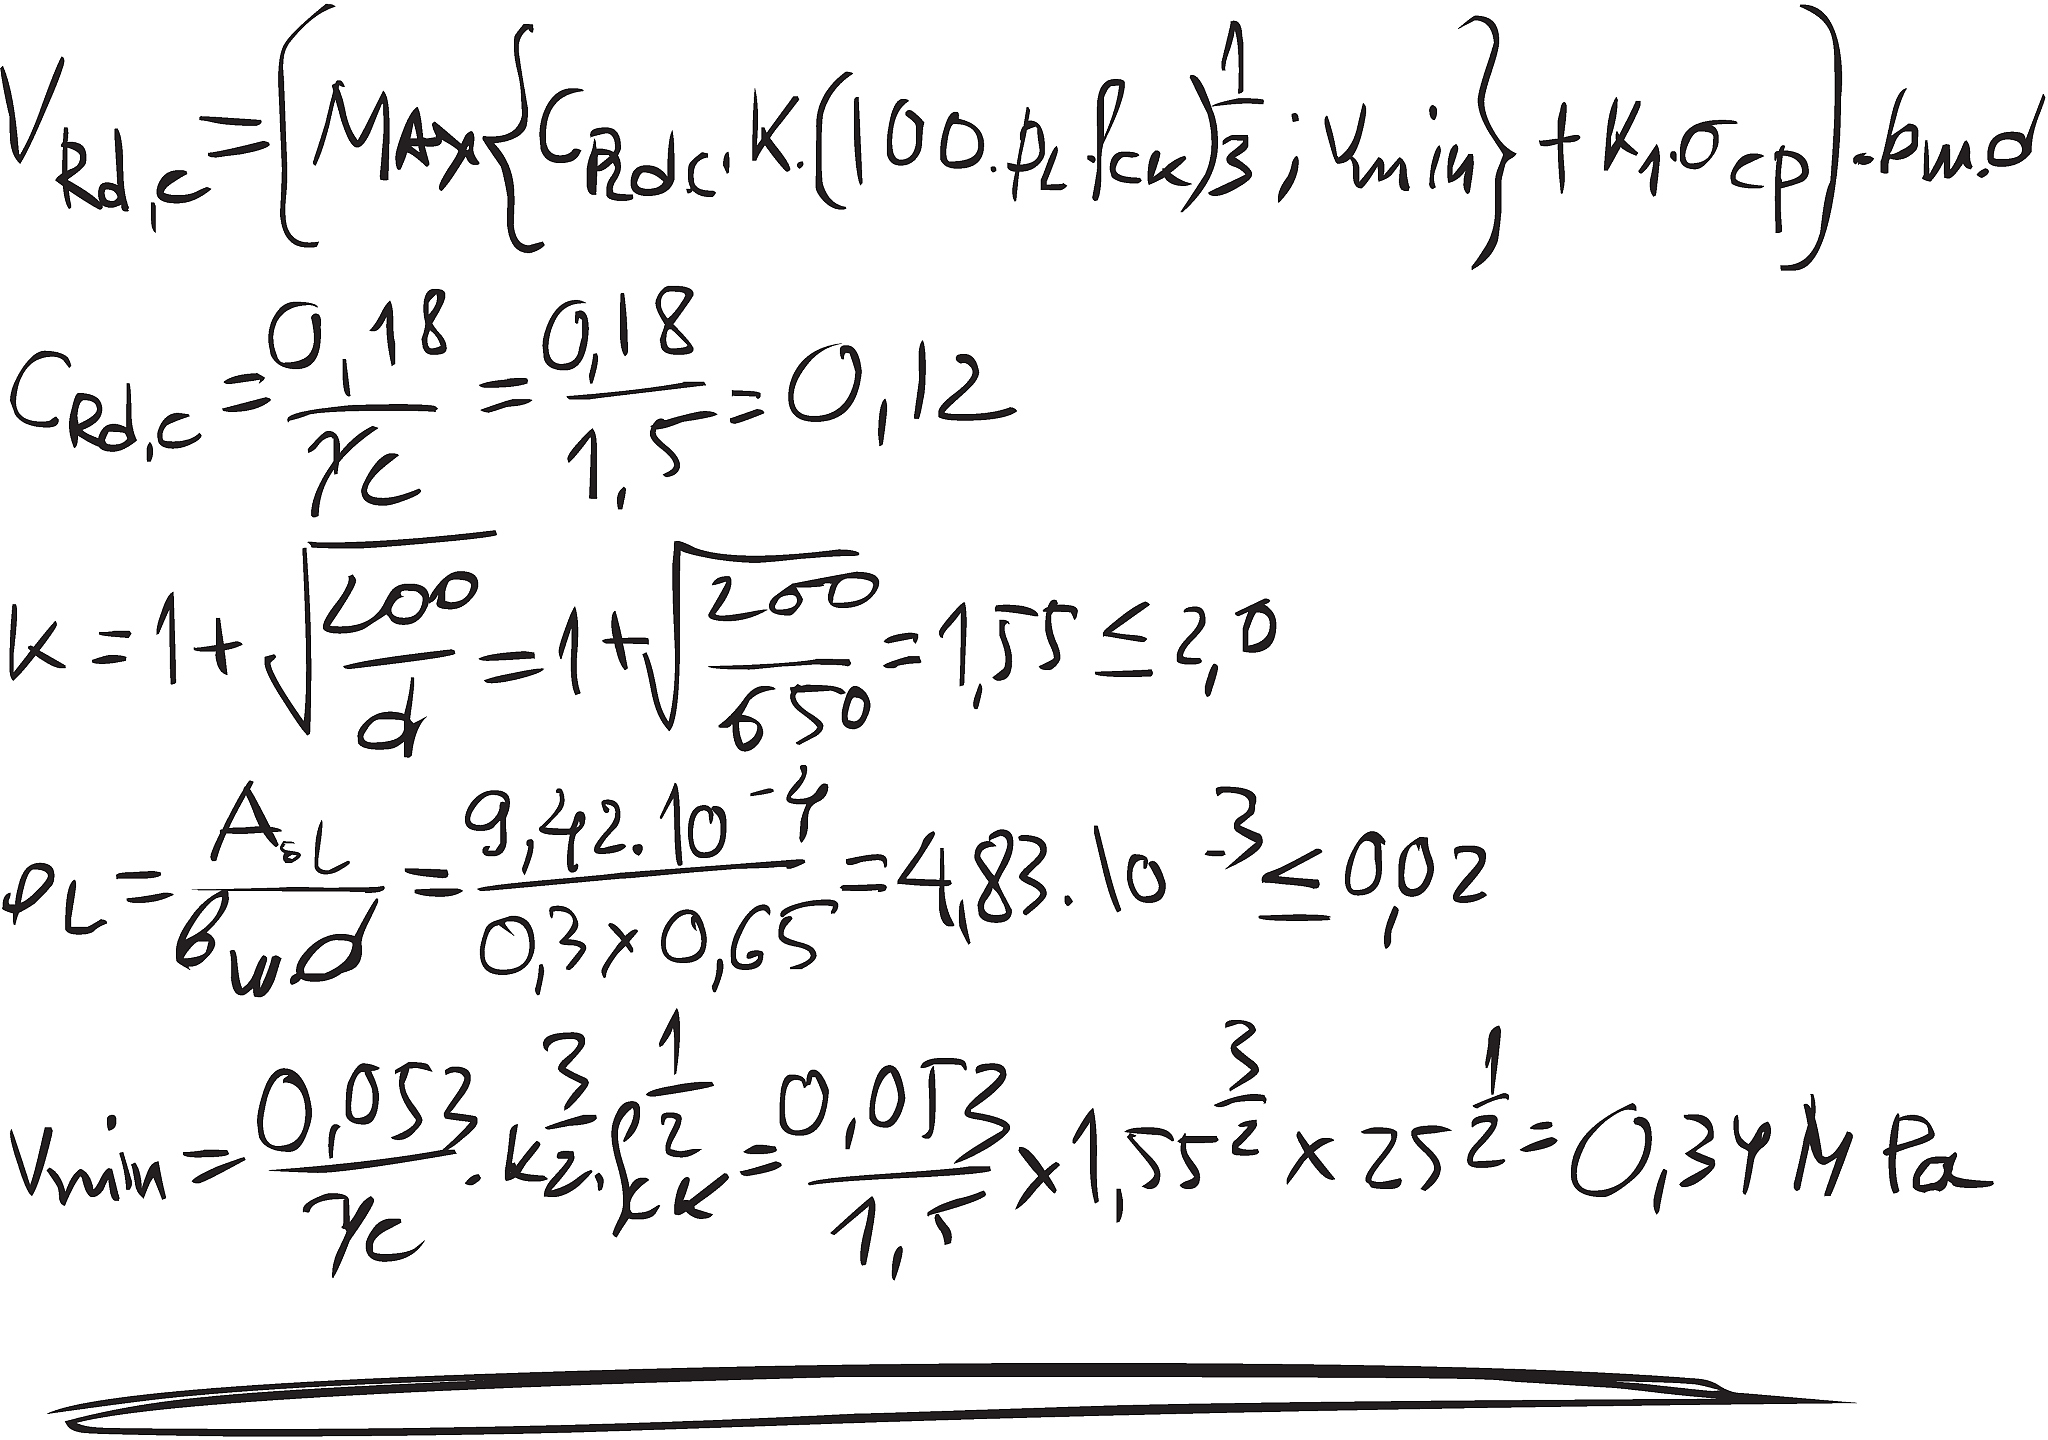 V_Rd,c = (MAX{C_Rdc.K.(100.ρL.fck)^1/3; Vmin} + K1.σcp).bw.d
C_Rd,c = 0,18/γc = 0,18/1,5 = 0,12
K = 1+√(200/d) = 1+√(200/650) = 1,55 ≤ 2,0
ρL = AsL/bw.d = 9,42.10^-4/0,3x0,65 = 4,83.10^-3 ≤ 0,02
Vmin = 0,053/γc . K^3/2 . fck^1/2 = 0,053/1,5 x 1,55^3/2 x 25^1/2 = 0,34 MPa